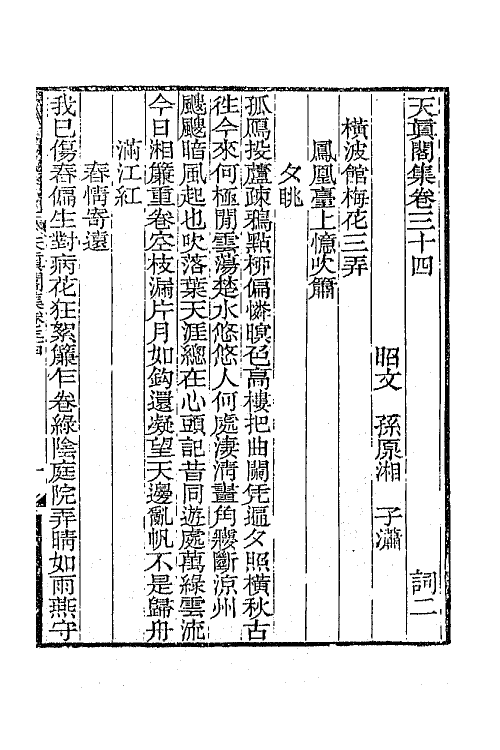 天眞閣集卷三十四　詞二
昭文　孫原湘　子瀟
橫波館梅花三弄
鳳凰臺上憶吹簫
夕眺
孤鴈投蘆疎鴉點柳偏憐暝色高樓把曲闌凭遍夕照橫秋古
往今來何極閒雲蕩楚水悠悠人何處淒淸畫角聲斷涼州
颼颼暗風起也吹落葉天涯總在心頭記昔同遊處萬綠雲流
今日湘簾重卷空枝漏片月如鈎還凝望天邊亂帆不是歸舟
滿江紅
春情寄遠
我已傷春偏生對病花狂絮簾乍卷綠陰庭院弄晴如雨燕守
天眞閣集卷三十四　一